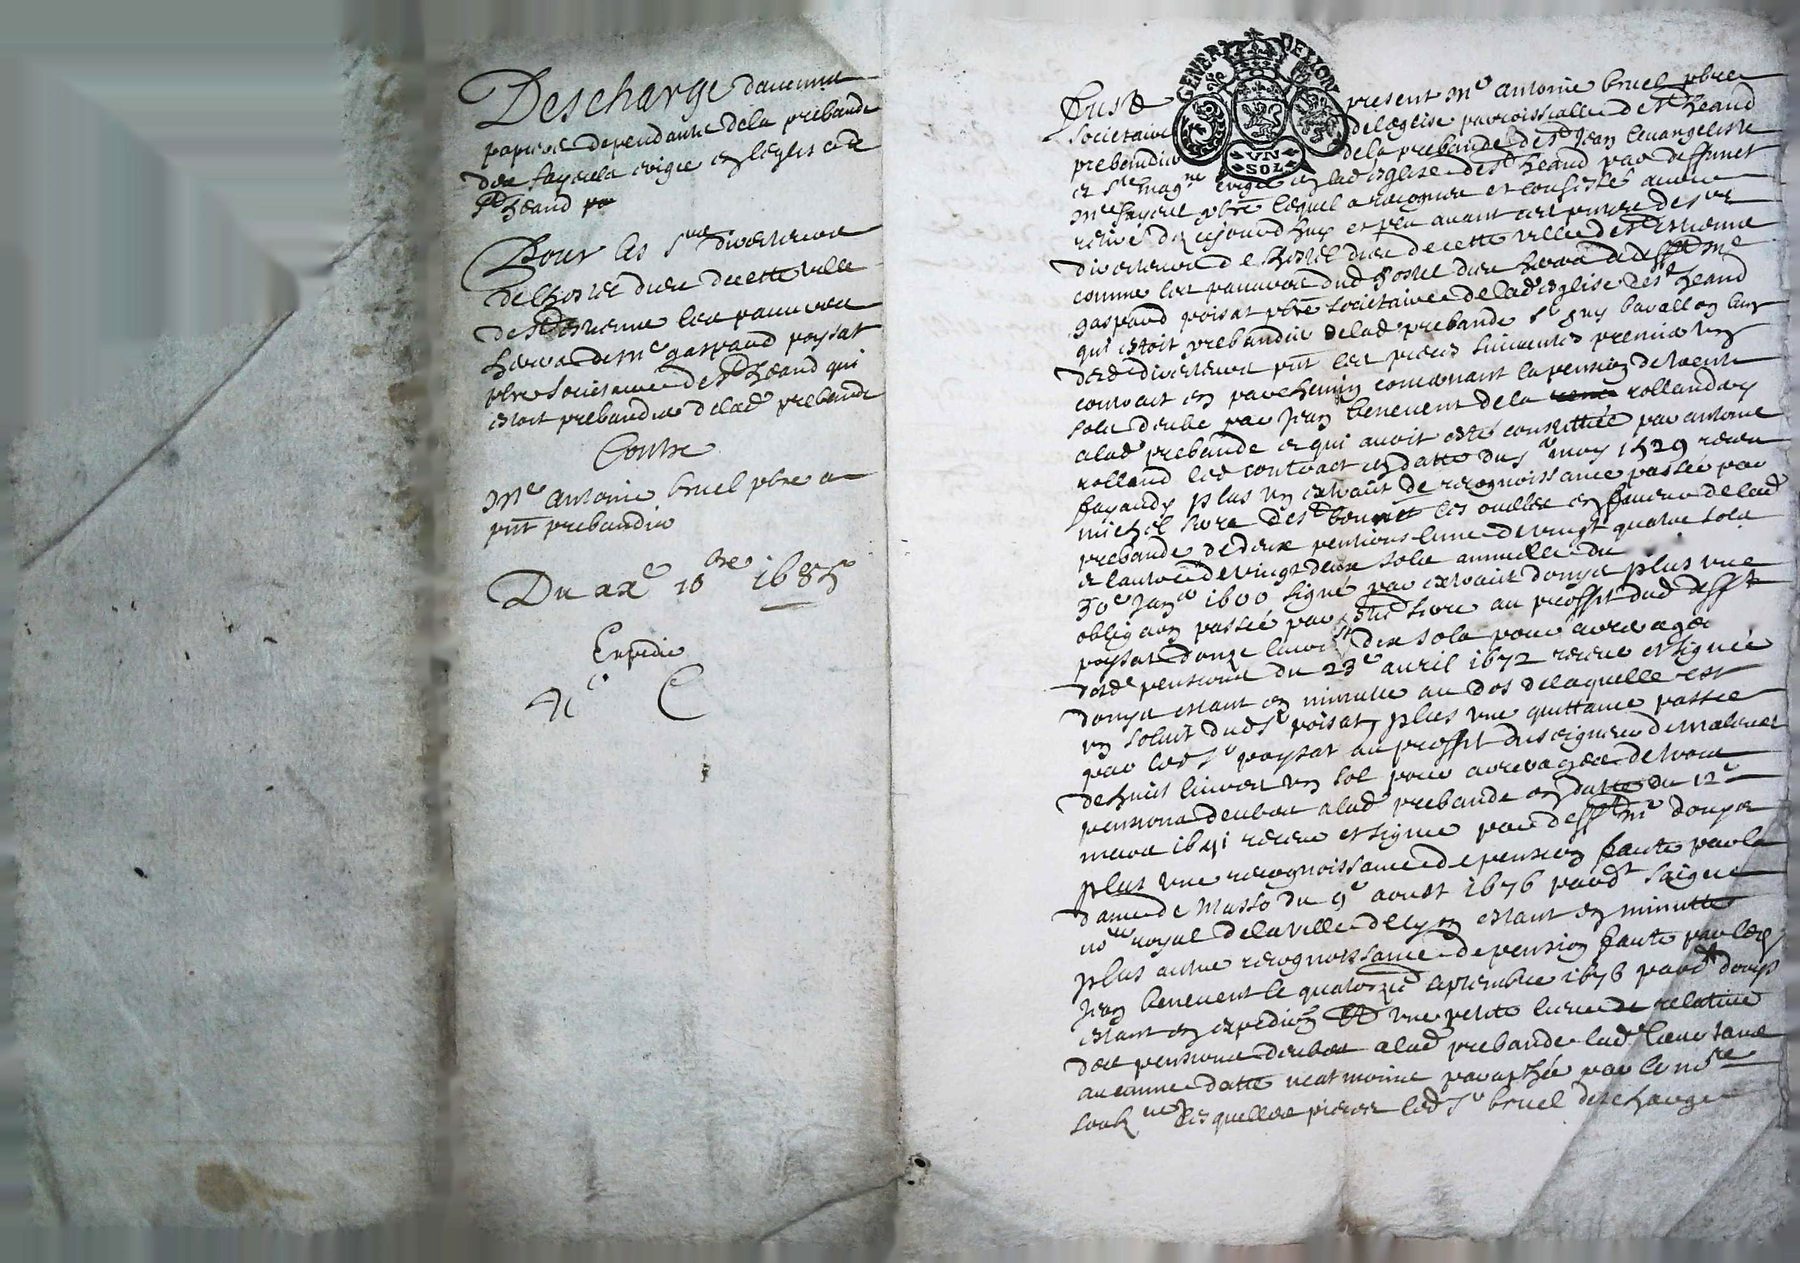 Descharge daucuns
papiers dependants dela prebande
des fayeulx erigee en leglise de
St heand
Pour les srs directeurs
de lhostel dieu de cette ville
de St Estienne les pauvres
heritiers de Me gaspard poysat
pbre societaire de St heand qui
estoit prebandier de lad prebande
Contre
Me antoine bruel pbre au
pnt prebandier
Du xxe 10bre 1685
Expedié
GENERA DE LYON
VN SOL
Fust present Me antoine bruel pbre
societaire de leglise parroissialle de St heand
prebandier de la prebande de St Jean Evangeliste
et Ste magne erigee en lad esglise de St heand par deffunct
pbre lequel a recogneu et confessé avoir
retiré ce jourdhuy et peu avant ces pntes des srs
directeurs de lhostel dieu de cette ville de St Estienne
comme les pauvres dud hostel dieu de defft Me
gaspard poisat pbre societaire de lad esglise de St heand
qui estoit prebandier de lad prebande sr guy
desd directeurs pnt les pieces suivantes premier un
contract en parchemin contenant la pension de trente
sols deube par Jean benevent de la rollandary
a lad prebande et qui avoit esté constituée par antoine
rolland led contract en datte du may 1529 receu
fayandy plus un extraict de recognoissance passée par
michel siore de St bonnet les oulles en faveur de lad
prebande de deux pensions lune de vingt quatre sols
et lautre de vingt deux sols annuelle du
30e Janer 1600 signé par extraict plus une
obligaon passée par siore au proffit dud defft
poysat donze livres dix sols pour arrerages
desd pensions du 23e avril 1672 receue et signée
estant en minutte au dos de laquelle est
un solvit dud sr poisat, plus une quittance passée
par led sr poysat au proffit du seigneur de
de huict livres un sol pour arrerages de trois
pensions deubes a lad prebande en datte du 12e
mars receue et signee par defft me
plus une recognoissance de pension faitte par la
dame de Masso du 9e aoust 1676 pardt
nore royal de la ville de lyon estant en minutte
plus autre recognoissance de pension faitte par led
Jean benevent le quatorzie septembre 1676 pard
estant en expedion une petite lieve de relative
des pensions deubes a lad prebande lad lieve sans
aucune datte neatmoins paraphée par le nore
soubzne lesquelles pieces led sr bruel descharge